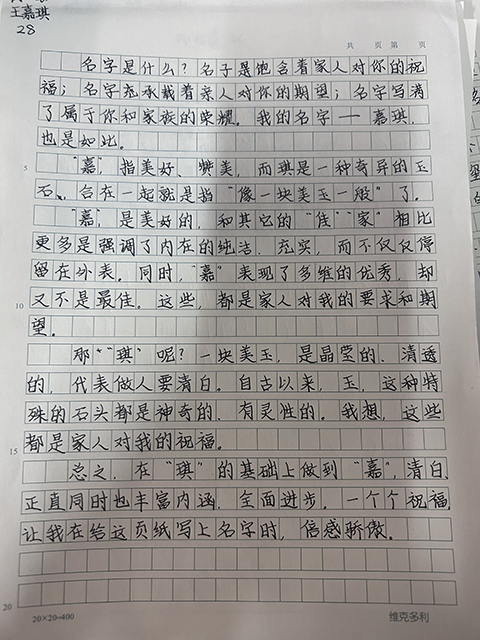 王嘉琪
28
共 页 第 页
名字是什么？名子是饱含着家人对你的祝
福；名字充承载着亲人对你的期望；名字写满
了属于你和家族的荣耀。我的名字一嘉琪，
也是如此。
5
"嘉"，指美好、赞美，而琪是一种奇异的玉
石、合在一起就是指"像一块美玉一般"了。
"嘉"，是美好的，和其它的"佳""家"相比
更多是强调了内在的纯洁、充实，而不仅仅停
留在外表。同时，"嘉"表现了多维的优秀，却
10
又不是最佳。这些，都是家人对我的要求和期
望。
那"琪"呢？一块美玉，是晶莹的、清透
的，代表做人要清白。自古以来，玉，这种特
殊的石头都是神奇的、有灵性的。我想，这些
15
都是家人对我的祝福。
总之，在"琪"的基础上做到"嘉"，清白、
正直同时也丰富内涵，全面进步。一个个祝福，
让我在给这页纸写上名字时，倍感骄傲。
20
20×20=400
维克多利